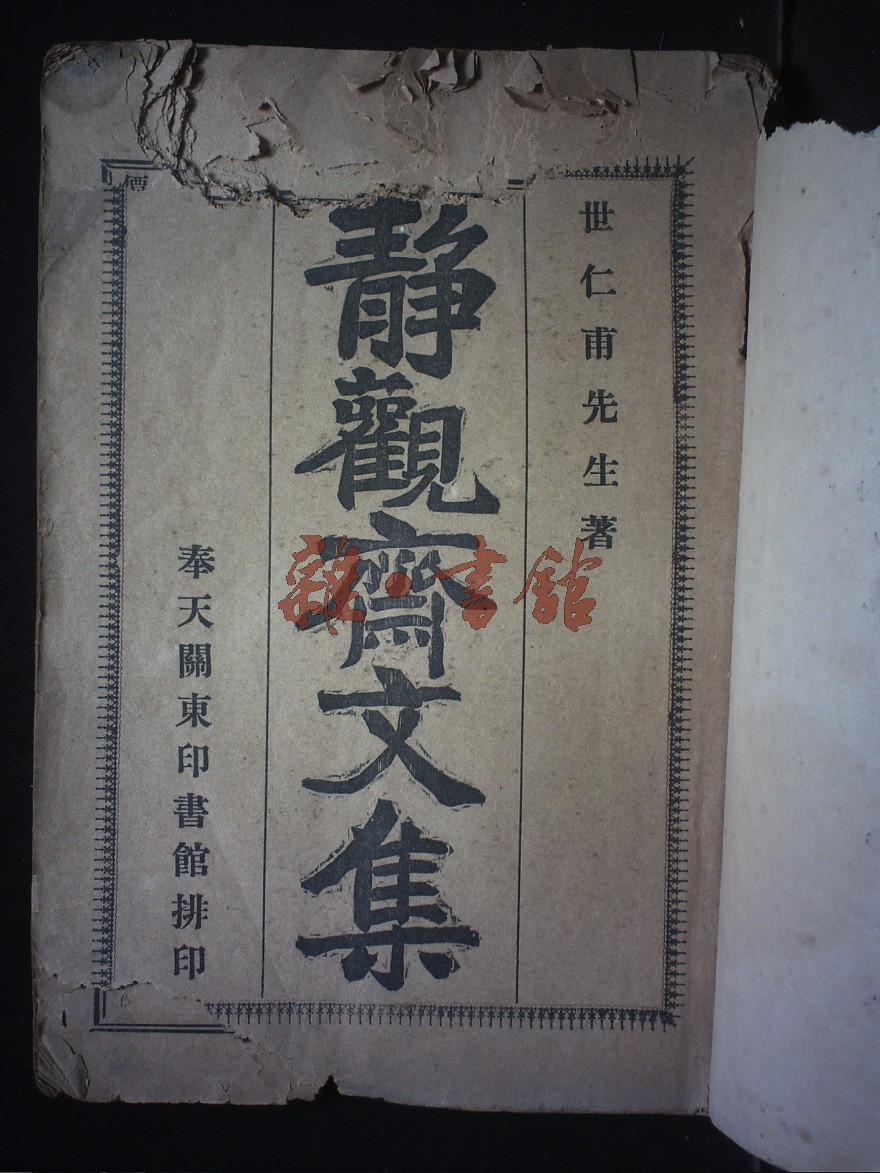 世仁甫先生著
靜觀齋文集
奉天關東印書館排印
雜·書館